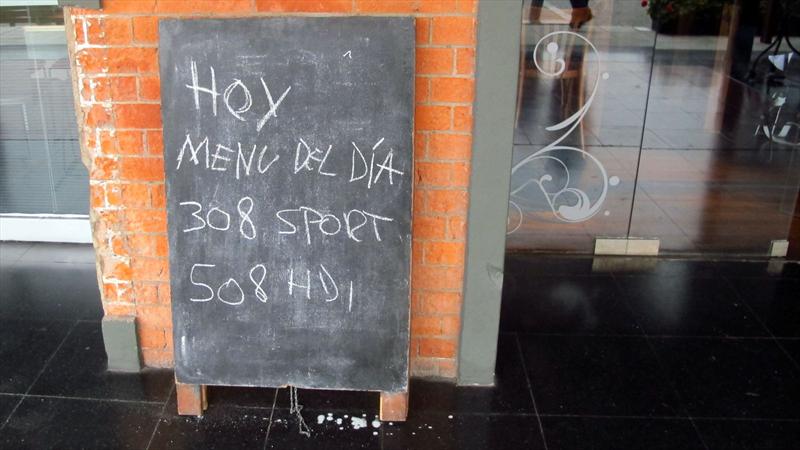 HOY
MENU DEL DÍA
308 SPORT
508 HDI